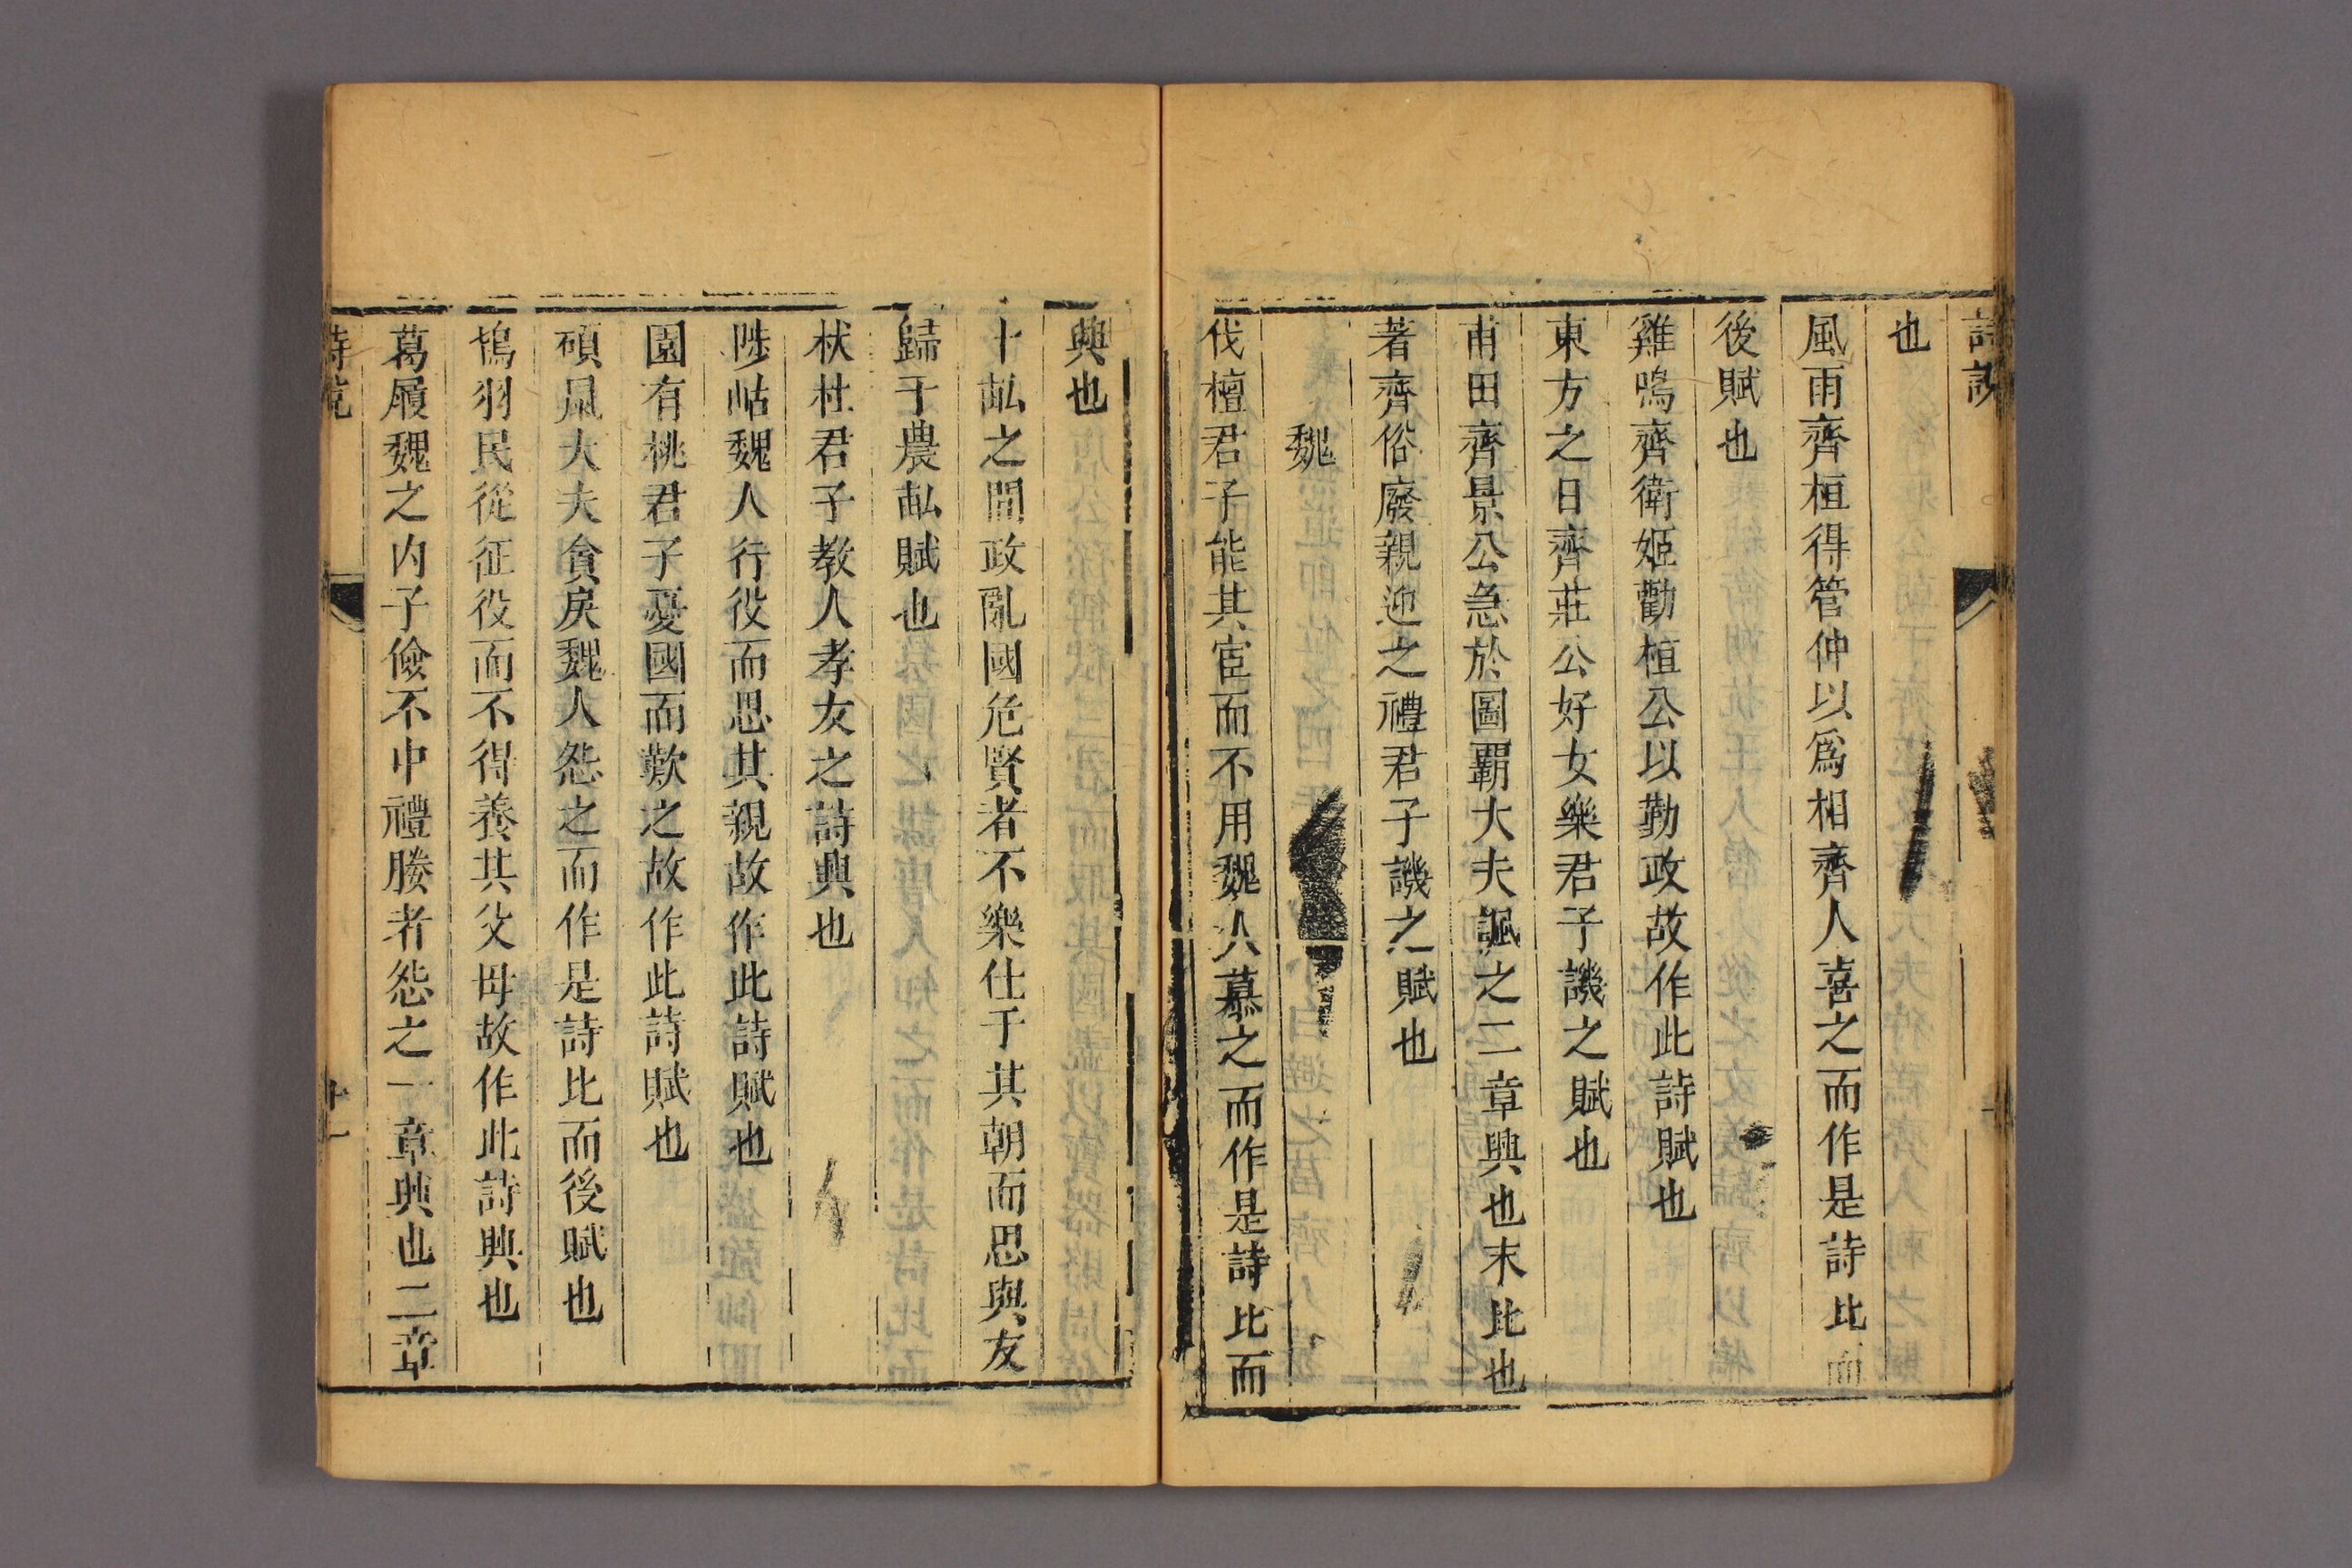 詩說
也
風雨齊桓得管仲以爲相齊人喜之而作是詩比而
後賦也
雞鳴齊衛姬勸桓公以勤政故作此詩賦也
東方之日齊莊公好女樂君子譏之賦也
甫田齊景公急於圖霸大夫諷之二章興也末比也
著齊俗廢親迎之禮君子譏之賦也
魏
伐檀君子能其宦而不用魏人慕之而作是詩比而
興也
十畝之間政亂國危賢者不樂仕于其朝而思與友
歸于農畝賦也
杕杜君子教人孝友之詩興也
陟岵魏人行役而思其親故作此詩賦也
園有桃君子憂國而歎之故作此詩賦也
碩鼠大夫貪戾魏人怨之而作是詩比而後賦也
鴇羽民從征役而不得養其父母故作此詩興也
葛屨魏之内子儉不中禮媵者怨之一章興也二章
詩說
十一